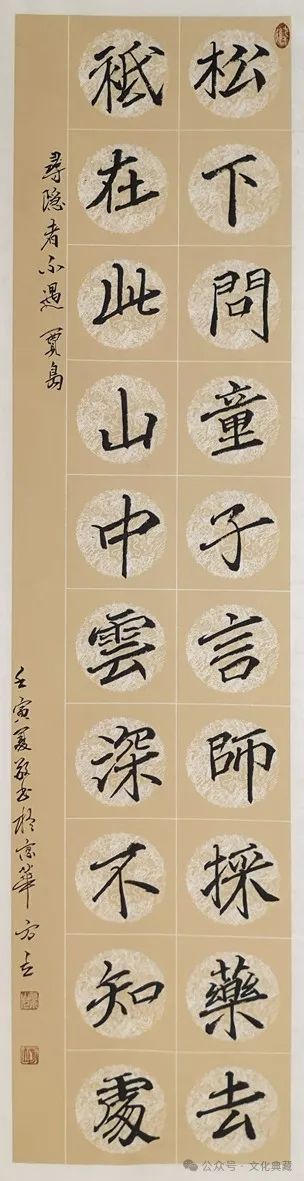 松下問童子言師採藥去
祗在此山中雲深不知處
尋隐者不遇 賈島
壬寅夏敬书於京華 方立
公众号·文化典藏